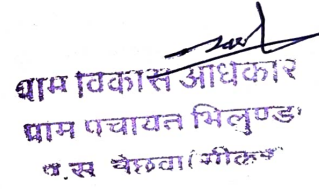 ग्राम विकास अधिकार
ग्राम पंचायत भिलुण्डा
पं.स. नेछवा (सीकर)